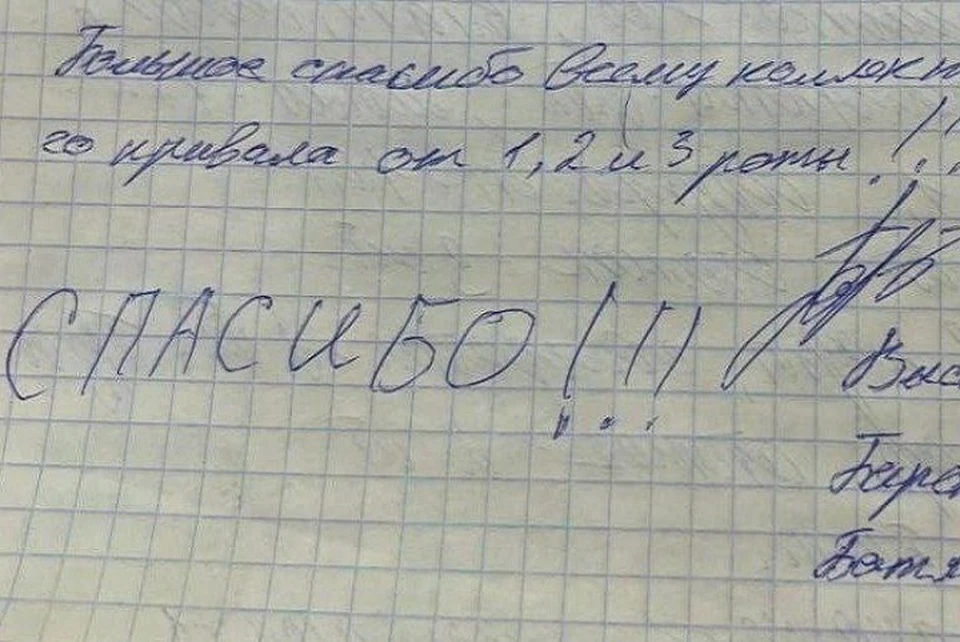 Большое спасибо всему коллект
го привала от 1, 2 и 3 роты !!!
СПАСИБО!!!
Выс
Бат